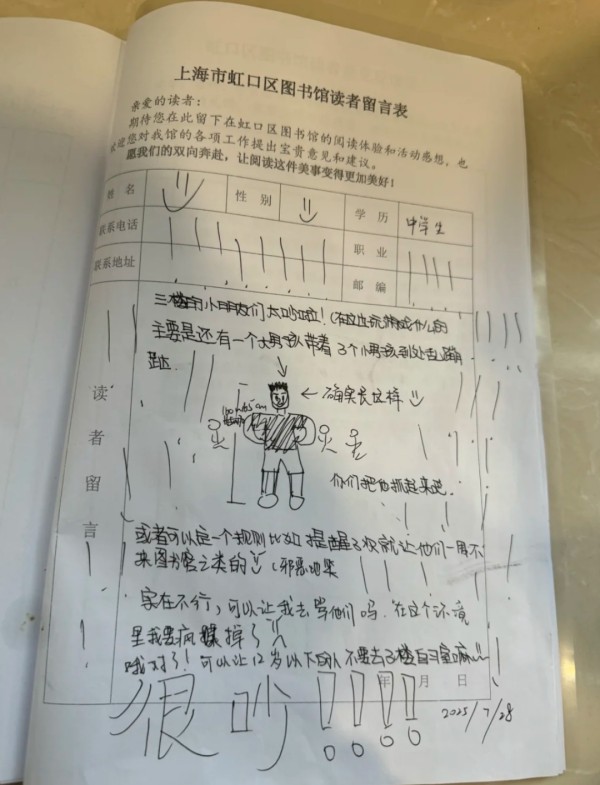 上海市虹口区图书馆读者留言表
亲爱的读者：
期待您在此留下在虹口区图书馆的阅读体验和活动感想，也
欢迎您对我馆的各项工作提出宝贵意见和建议。
愿我们的双向奔赴，让阅读这件美事变得更加美好！
姓 名
性 别
学 历
中学生
联系电话
职 业
联系地址
邮 编
读者留言
三楼的小朋友们太吵啦！（在这边玩游戏什么的
主要是还有一个大男孩带着3个小男孩到处乱
← 确实长这样
你们把他抓起来吧.
或者可以定一个规则比如提醒3次就让他们一周不
来图书馆之类的 （邪恶地笑
实在不行，可以让我去管他们吗. 在这个环境
里我要疯掉了
哦对了！可以让12岁以下的人不要去3楼自习室嘛~
年 月 日
2025/7/28
很吵！！！！